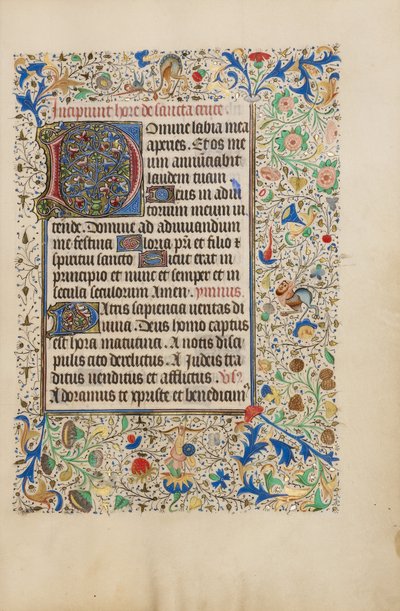 Incipiunt hore de sancta cruce
Domine labia mea
aperies. Et os me
um annunciabit
laudem tuam
Deus in adi
torium meum in
tende. Domine ad adiuvandum
me festina Gloria pri et filio &
spiritui sancto Sicut erat in
principio et nunc et semper et in
secula seculorum Amen. ymnus.
Patris sapiencia veritas di
vina. Deus homo captus
est hora matutina. A notis disci
pulis cito derelictus. A Judeis tra
ditus venditus et afflictus. Vs.
Adoramus te xpriste et benedicim